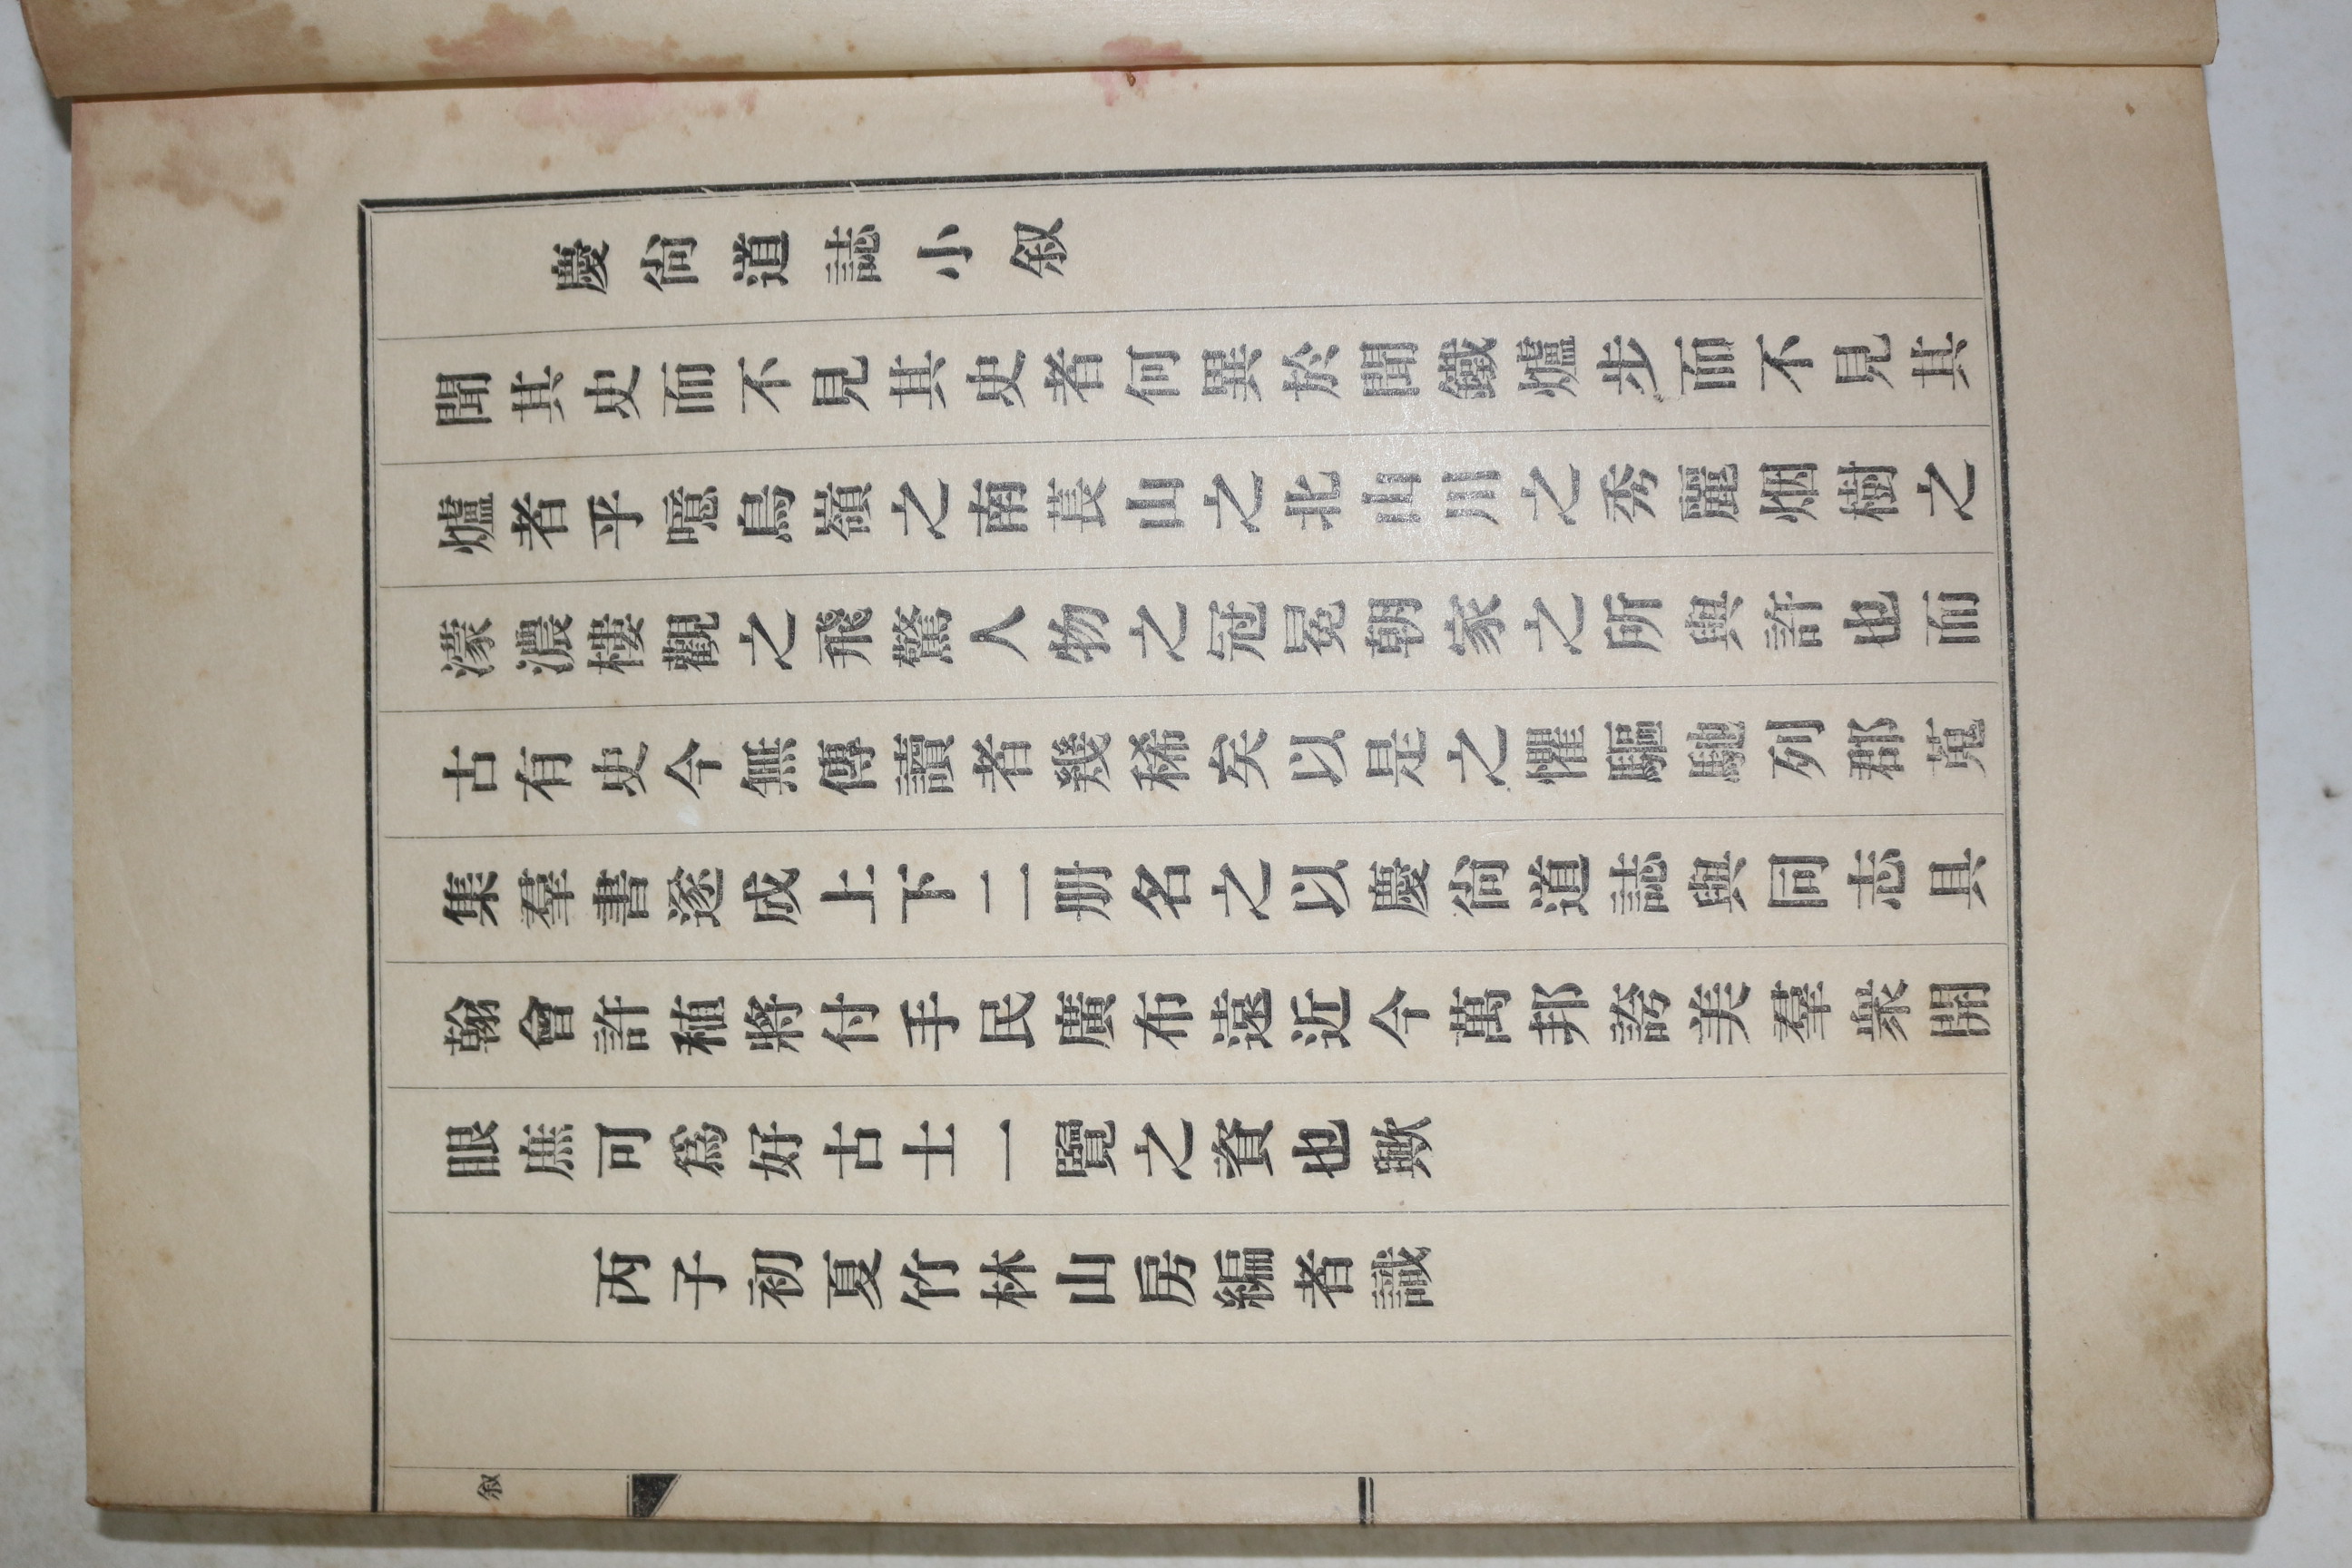 慶尙道誌小叙
聞其史而不見其史者何異於聞鐵爐步而不見其
爐者乎噫鳥嶺之南萇山之北山川之秀麗烟樹之
濛濃樓觀之飛驚人物之冠冕朝家之所與許也而
古有史今無傳讀者幾稀矣以是之懼驅馳列郡蒐
集羣書遂成上下二册名之以慶尙道誌與同志具
翰會許稙將付手民廣布遠近今萬邦誇美羣衆開
眼庶可爲好古士一覽之資也歟
丙子初夏竹林山房編者識
叙